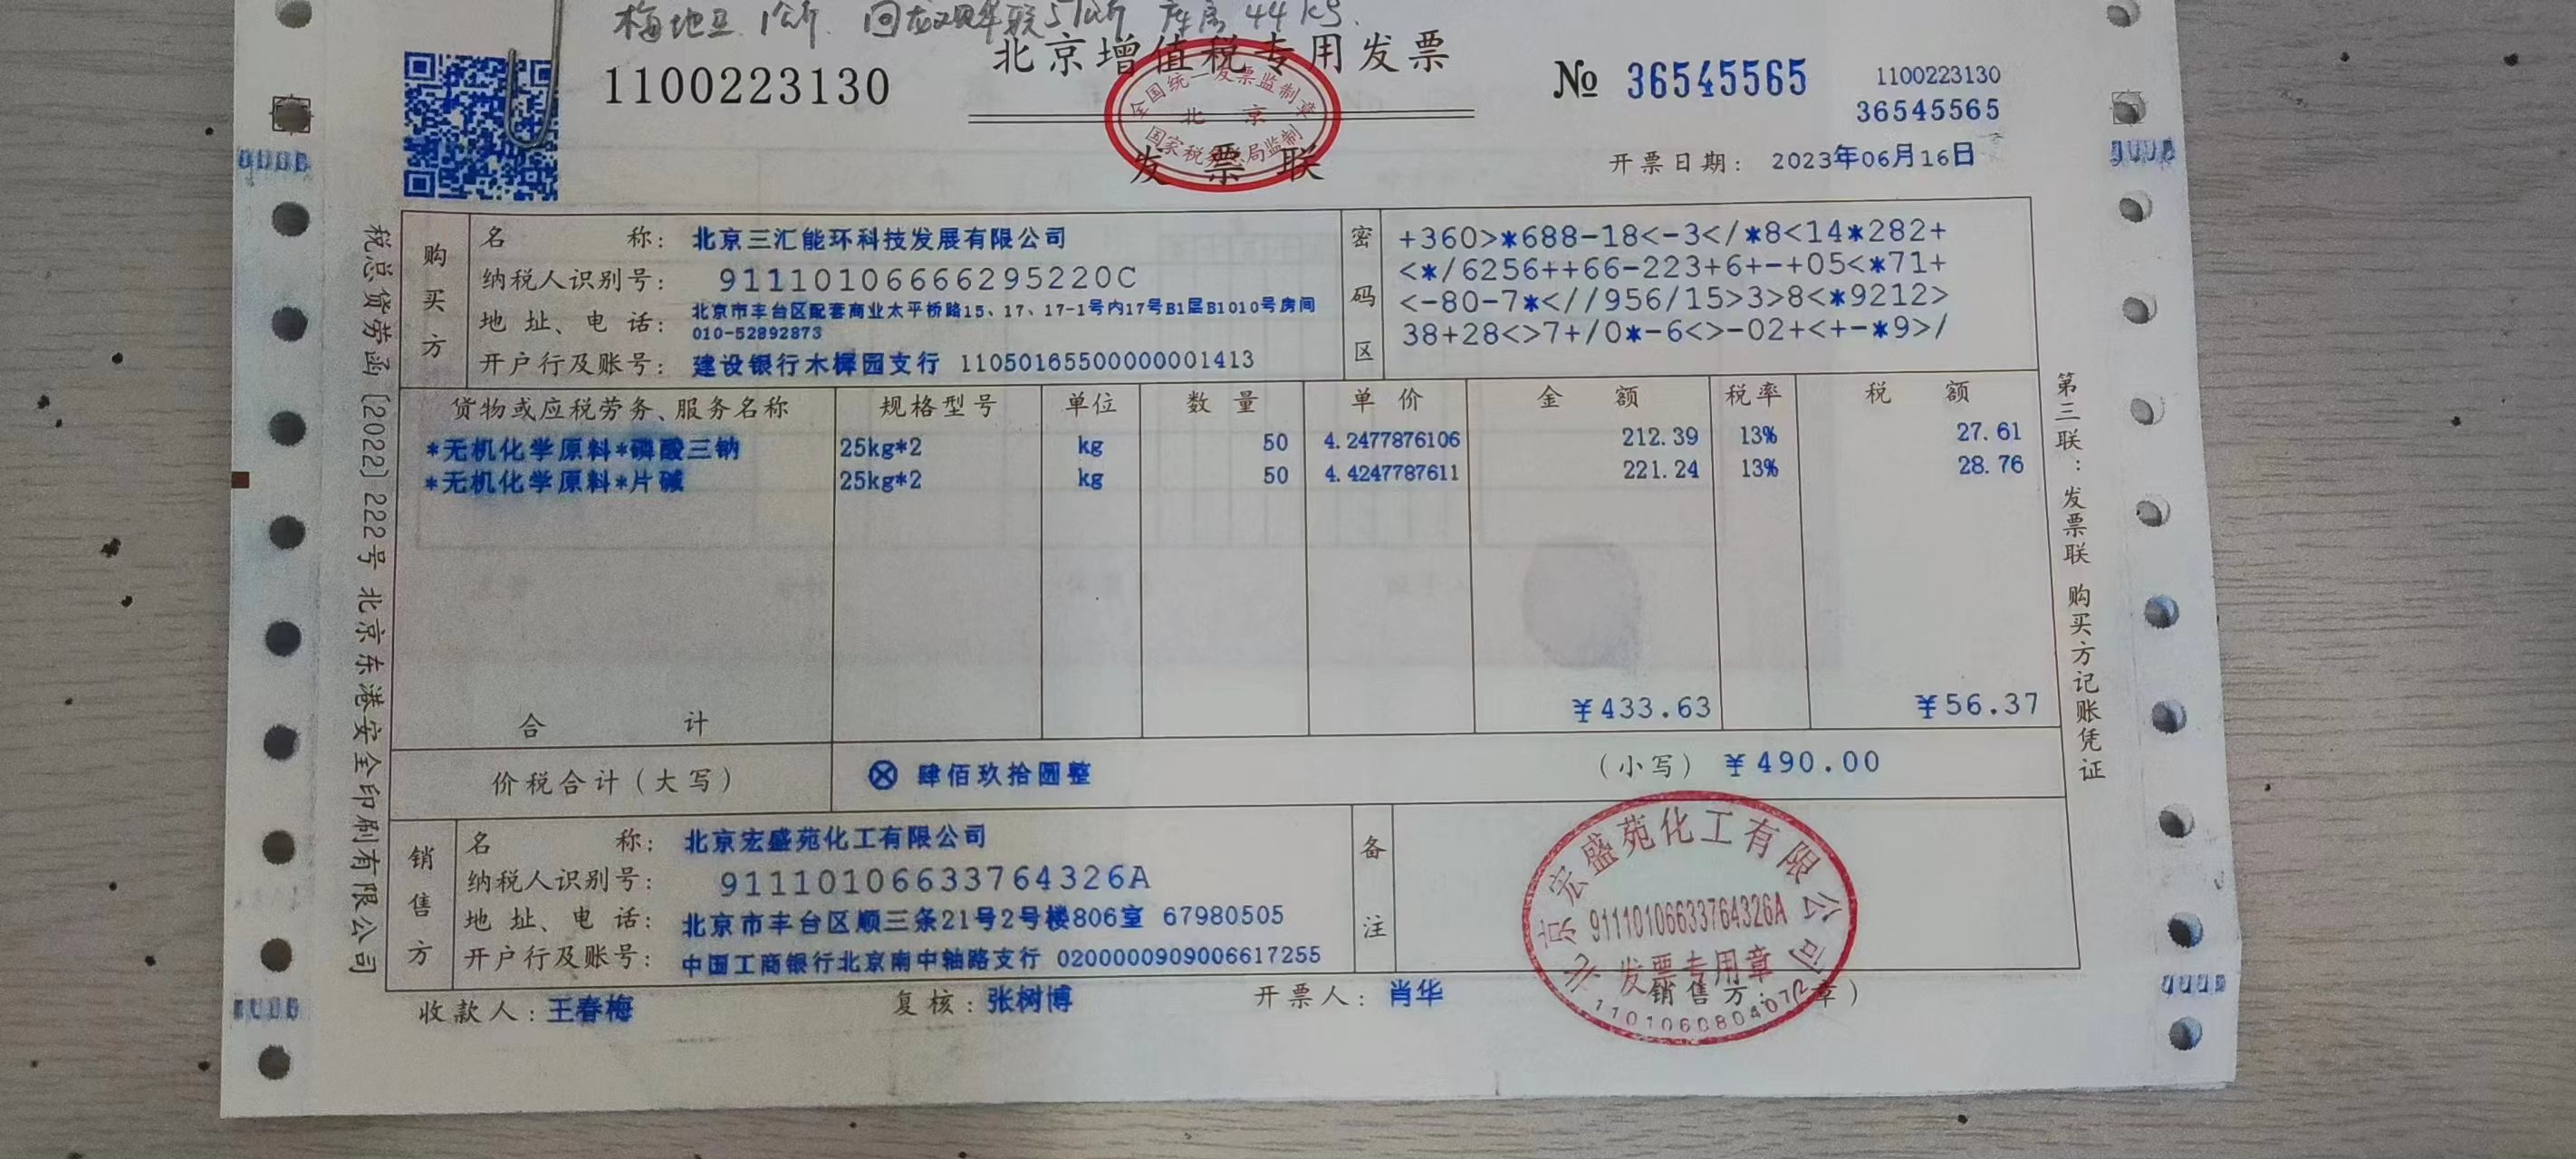 梅地亚 1公斤 回龙观华联 5公斤 库房 44kg.
北京增值税专用发票
1100223130
№ 36545565
1100223130
36545565
全国统一发票监制章
北 京
国家税务总局监制
发票联
开票日期: 2023年06月16日
税总货劳函〔2022〕222号 北京东港安全印刷有限公司
购买方
名 称: 北京三汇能环科技发展有限公司
纳税人识别号: 91110106666295220C
地址、电话: 北京市丰台区配套商业太平桥路15、17、17-1号内17号B1层B1010号房间
010-52892873
开户行及账号: 建设银行木樨园支行 11050165500000001413
密码区
+360>*688-18<-3</*8<14*282+
<*/6256++66-223+6+-+05<*71+
<-80-7*<//956/15>3>8<*9212>
38+28<>7+/0*-6<>-02+<+-*9>/
货物或应税劳务、服务名称 规格型号 单位 数量 单价 金额 税率 税额
*无机化学原料*磷酸三钠 25kg*2 kg 50 4.2477876106 212.39 13% 27.61
*无机化学原料*片碱 25kg*2 kg 50 4.4247787611 221.24 13% 28.76
合 计 ¥433.63 ¥56.37
价税合计(大写) ⊗ 肆佰玖拾圆整 (小写) ¥490.00
第三联:发票联 购买方记账凭证
销售方
名 称: 北京宏盛苑化工有限公司
纳税人识别号: 91110106633764326A
地址、电话: 北京市丰台区顺三条21号2号楼806室 67980505
开户行及账号: 中国工商银行北京南中轴路支行 0200000909006617255
备注
北京宏盛苑化工有限公司
91110106633764326A
发票专用章
收款人: 王春梅 复核: 张树博 开票人: 肖华 销售方:(章)